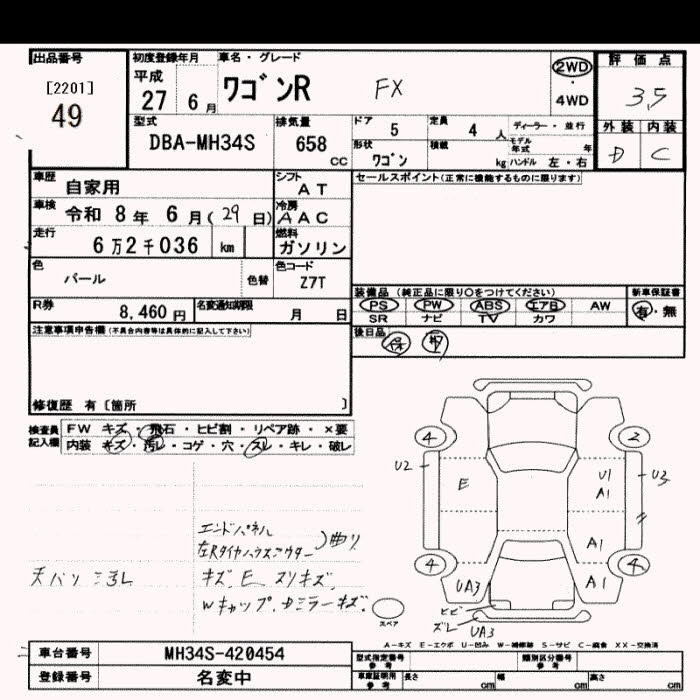 出品番号
[2201]
49
初度登録年月
平成
27 6月
車名・グレード
ワゴンR FX
2WD
・
4WD
評価点
3,5
外装 内装
D C
型式
DBA-MH34S
排気量
658
CC
ドア
5
定員
4 人
ディーラー・並行
モデル年式 年
形状
ワゴン
積載
kg
ハンドル 左・右
車歴
自家用
シフト
AT
車検
令和 8年 6月(29日)
冷房
AAC
走行
6万2千036 km
燃料
ガソリン
色
パール
色替
色コード
Z7T
R券
8,460円
名変通知期限
月 日
セールスポイント(正常に機能するものに限ります)
装備品 (純正品に限り○をつけてください)
新車保証書
PS PW ABS エアB AW
有・無
SR ナビ TV カワ
後日品
保 取
注意事項申告欄(不具合内容等は具体的に記入して下さい)
修復歴 有〔箇所 〕
検査員
記入欄
FW キズ・飛石・ヒビ割・リペア跡・×要
内装 キズ・汚レ・コゲ・穴・スレ・キレ・破レ
エンドパネル
左Rタイヤハウスアウター 曲り
キズ、E スリキズ、
Wキャップ、ドミラーキズ、
4 2
U2 E U1 U3
A1
A1
4 4
UA3 A1
ヒビ
ズレ UA3
スペア
A-キズ E-エクボ U-凹み W-補修跡 S-サビ C-腐食 XX-交換済
車台番号
MH34S-420454
登録番号
名変中
型式指定番号
参考
類別区分番号
参考
車庫証明用
参考
長さ cm
幅 cm
高さ cm